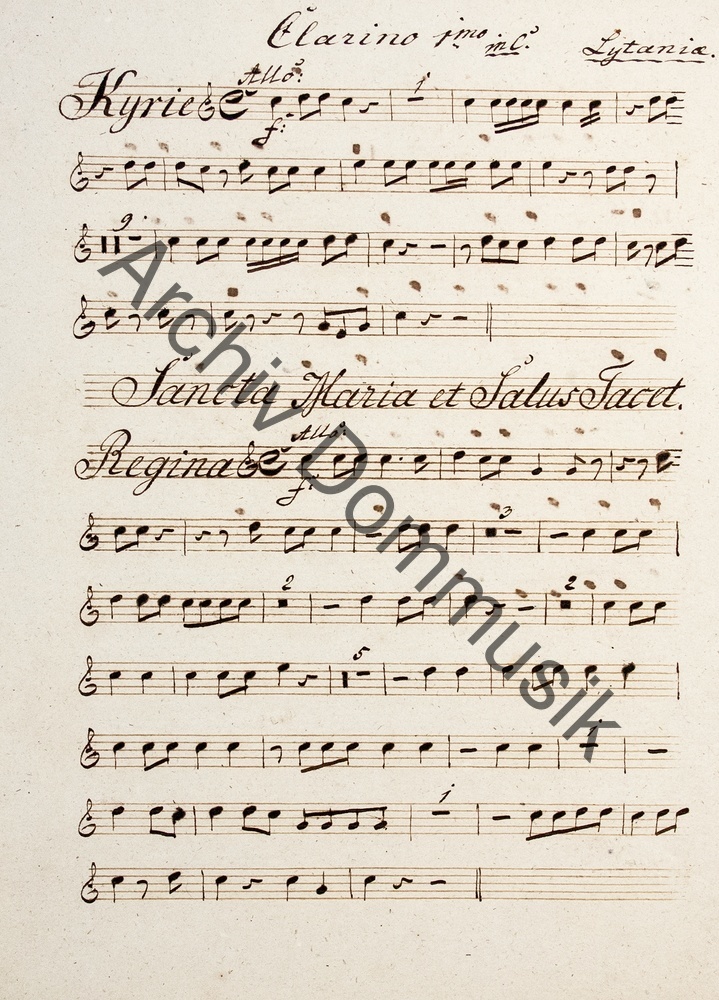 Clarino 1mo in C. Lytaniæ.
Allo:
Kyrie 1
f:
9.
Sancta Maria et Salus Tacet.
Allo:
Regina
f:
3
2 2
5
1
1
Archiv Dommusik